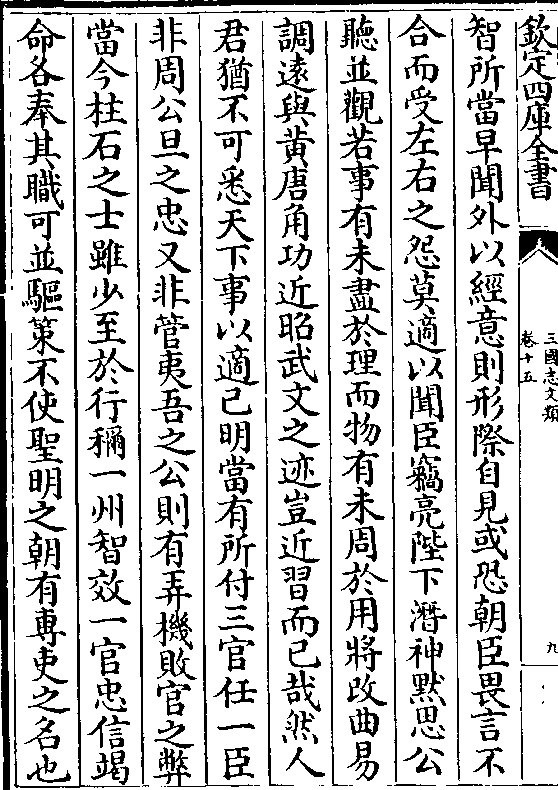 欽定四庫全書
三國志文類
卷十五
九
智所當早聞外以經意則形際自見或恐朝臣畏言不
合而受左右之怨莫適以聞臣竊亮陛下潛神默思公
聽並觀若事有未盡於理而物有未周於用將改曲易
調遠與黃唐角功近昭武文之迹豈近習而已哉然人
君猶不可悉天下事以適己明當有所付三官任一臣
非周公旦之忠又非管夷吾之公則有弄機敗官之弊
當今柱石之士雖少至於行稱一州智效一官忠信竭
命各奉其職可並驅策不使聖明之朝有專吏之名也